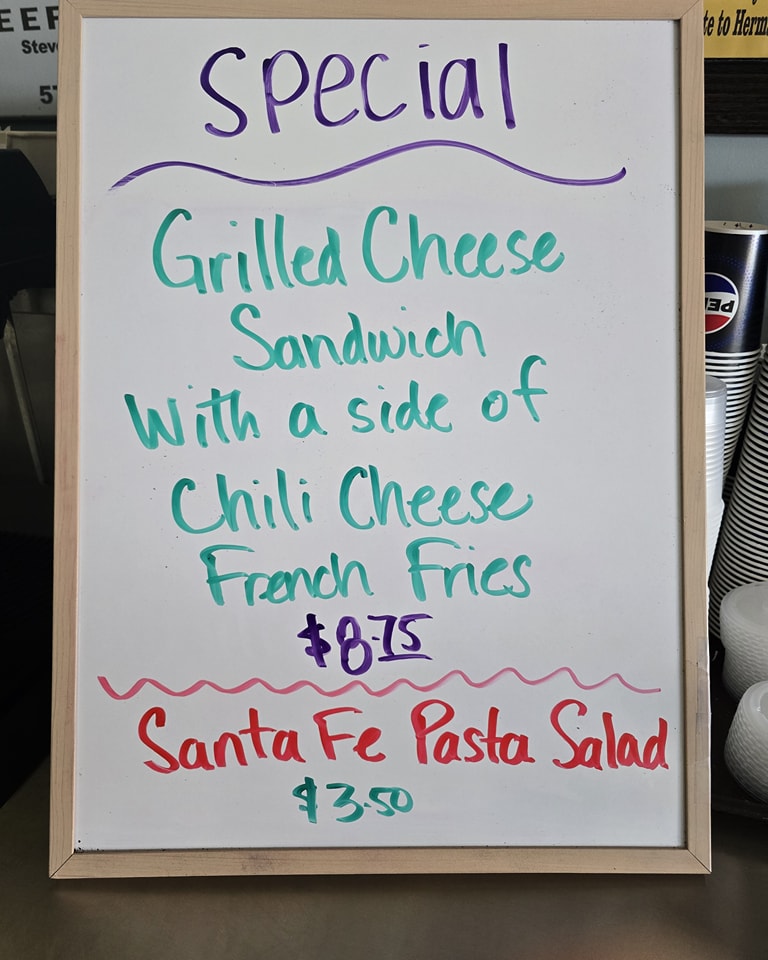 Special
Grilled Cheese
Sandwich
With a side of
Chili Cheese
French Fries
$8.75
Santa Fe Pasta Salad
$3.50
te to Herm
Stev
57